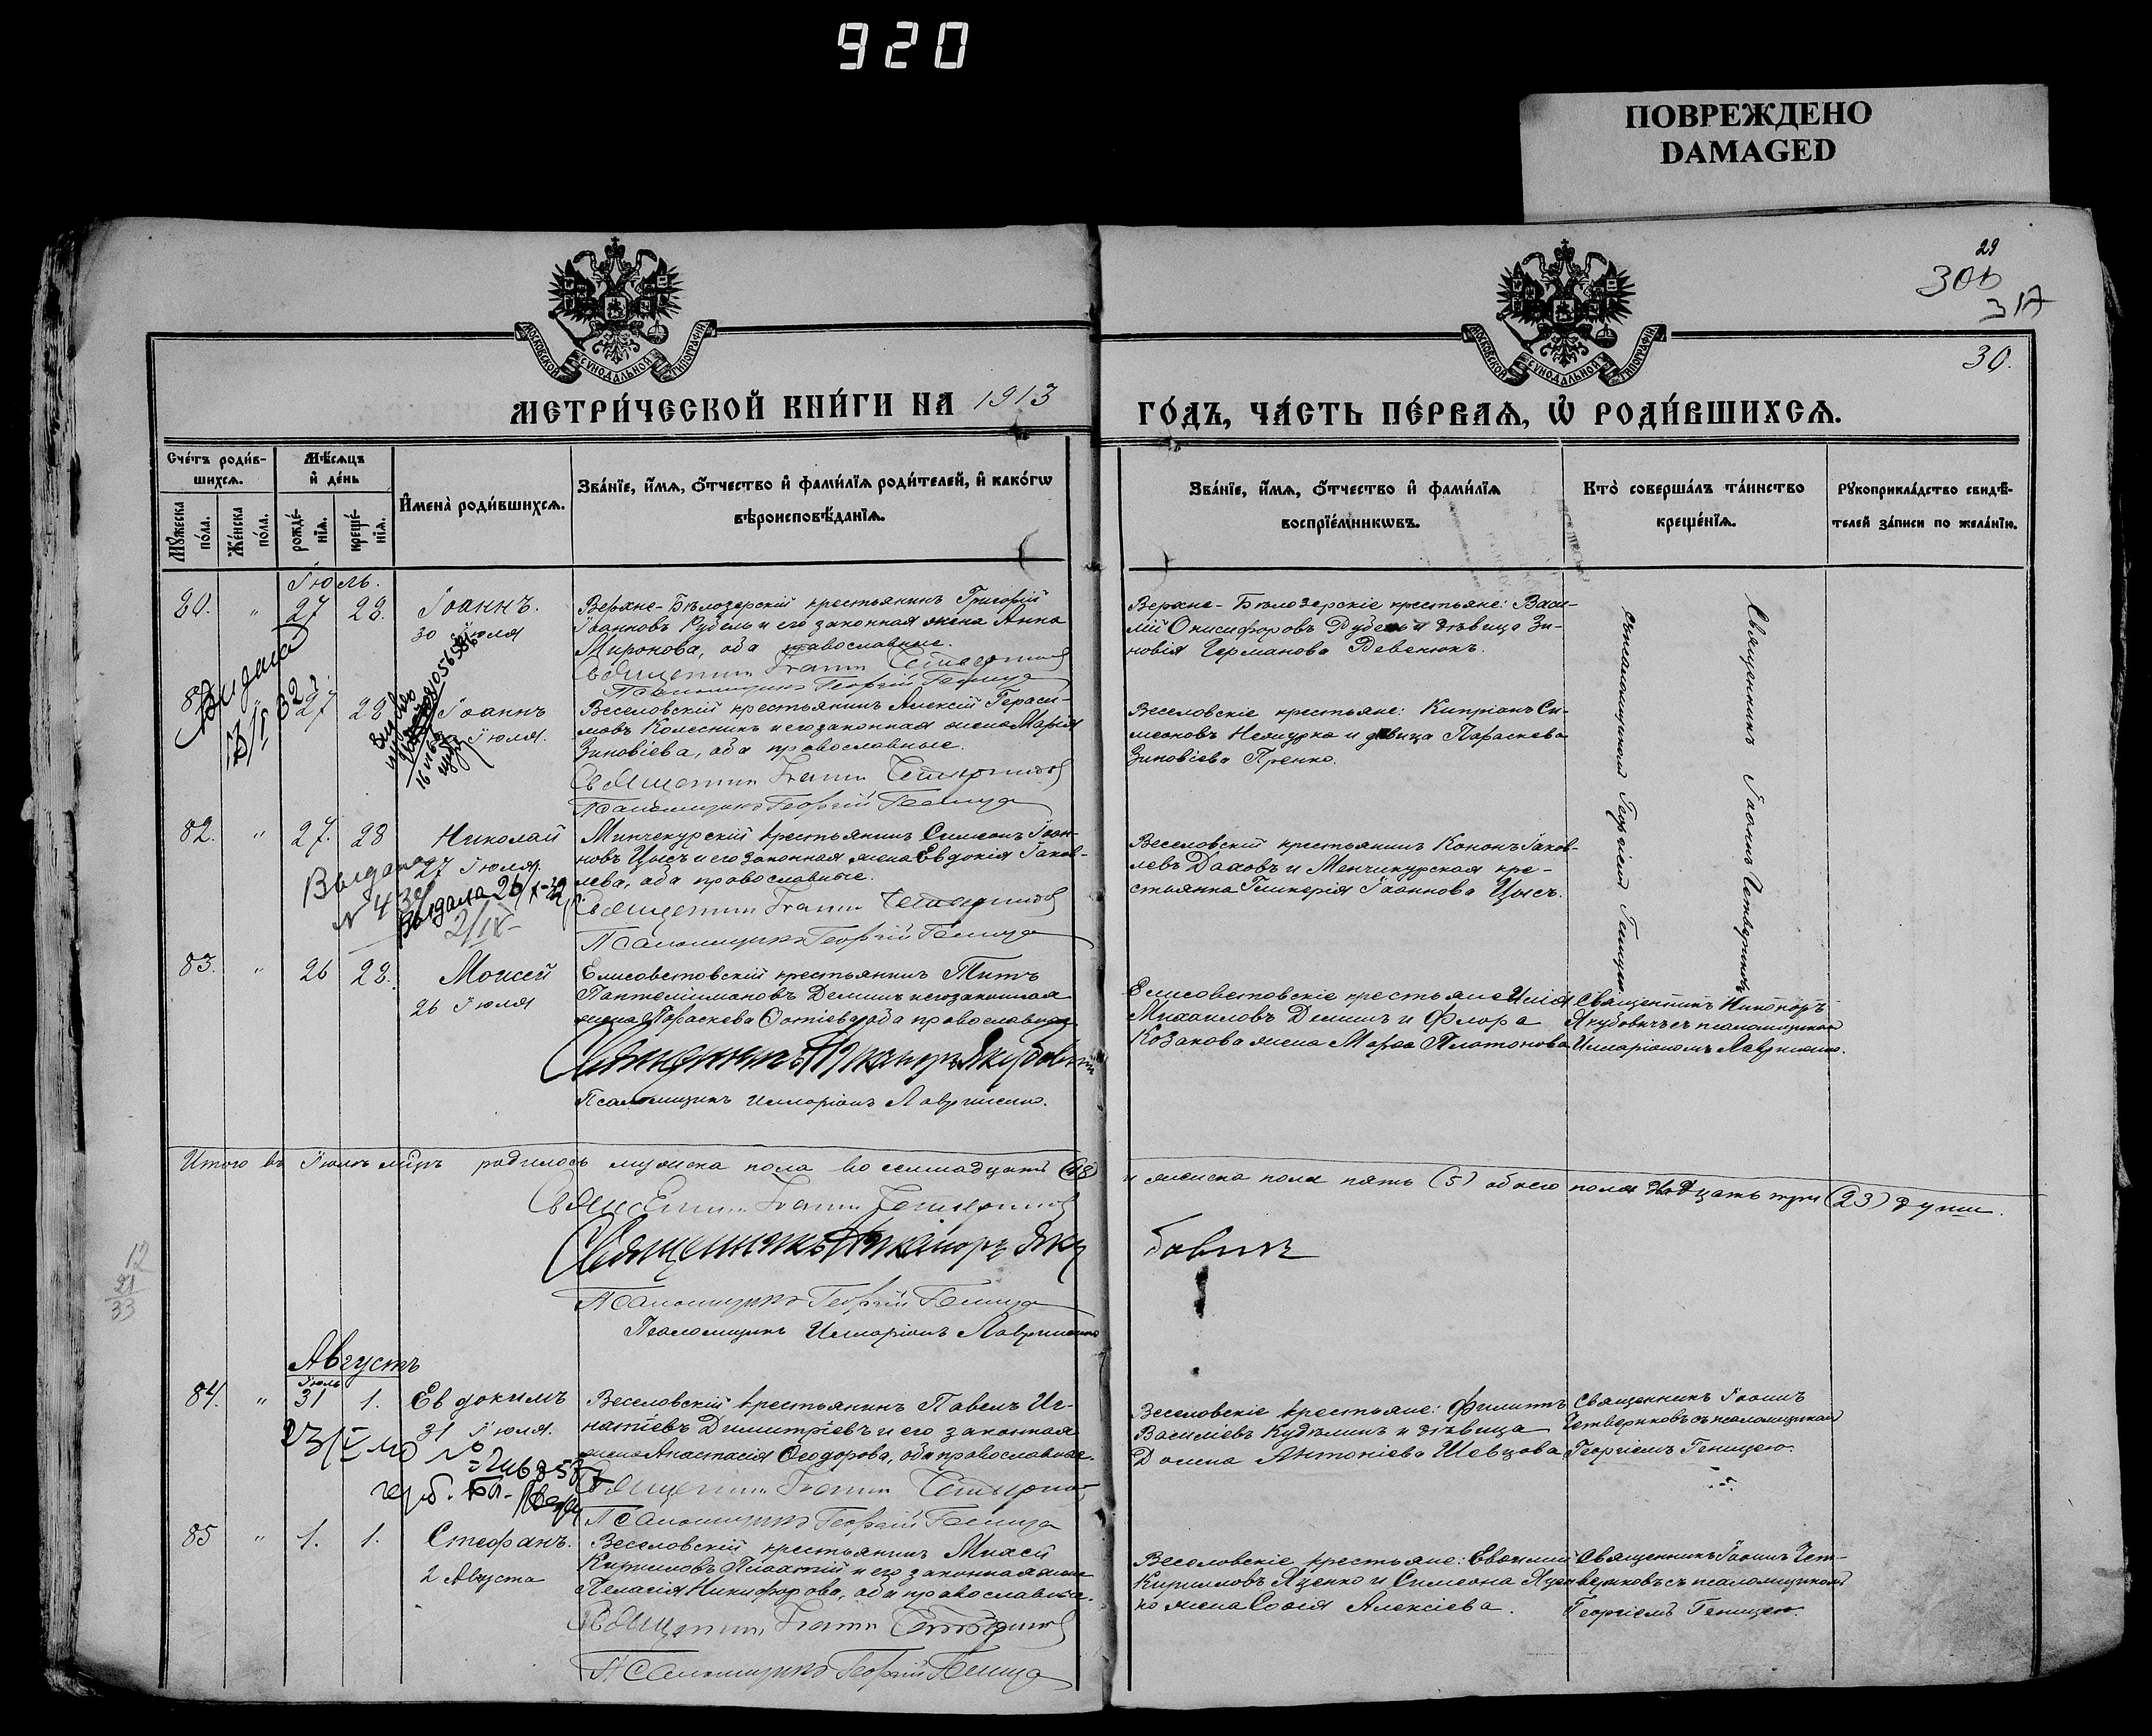 920
ПОВРЕЖДЕНО
DAMAGED
29
30
31
30.
МОСКОВСКОЙ СѴНОДАЛЬНОЙ ТИПОГРАФІИ
МОСКОВСКОЙ СѴНОДАЛЬНОЙ ТИПОГРАФІИ
МЕТРИ́ЧЕСКОЙ КНИ́ГИ НА 1913 ГО́ДЪ, ЧА́СТЬ ПЕ́РВАѦ, Ѡ РОДИ́ВШИХСѦ.
Сче́тъ роди́в-
шихсѧ.
Мѹ́жеска по́ла.
Же́нска по́ла.
Мѣ́сѧцъ и де́нь
рожде́-
нїѧ.
креще́-
нїѧ.
Имена̀ роди́вшихсѧ.
Зва́нїе, и́мѧ, о́тчество и фами́лїѧ роди́телей, и како́гѡ
вѣроисповѣ́данїѧ.
Зва́нїе, и́мѧ, о́тчество и фами́лїѧ
воспрїе́мникѡвъ.
Кто̀ соверша́лъ та́инство
креще́нїѧ.
Рѹкоприкла́дство свидѣ́-
телей за́писи по жела́нїю.
Іюль.
80. " 27 28. Іоаннъ.
30 Іюля
Верхне-Бѣлозерскій крестьянинъ Григорій
Іоанновъ Рубель и его законная жена Анна
Миронова, оба православные.
Священникъ Іоаннъ Четвериковъ
Псаломщикъ Георгій Геница
Верхне-Бѣлозерскіе крестьяне: Васи-
лій Онисифоровъ Рубель и дѣвица Зи-
новія Германова Ревенюкъ.
Священникъ Іоаннъ Четвериковъ
съ псаломщикомъ Георгіемъ Геницею
Выдана
" 27 28 Іоаннъ
Іюля.
Веселовскій крестьянинъ Алексій Гераси-
мовъ Колесникъ и его законная жена Марія
Зиновіева, оба православные.
Священникъ Іоаннъ Четвериковъ
Псаломщикъ Георгій Геница
Веселовскіе крестьяне: Кипріанъ Си-
меоновъ и дѣвица Параскева
Зиновіева
82. " 27. 28 Николай
27 Іюля.
Выдана
Выдана 26/X-
2/IX-
Минчекурскій крестьянинъ Симеонъ Іоан-
новъ Цысь и его законная жена Евдокія Іаков-
лева, оба православные.
Священникъ Іоаннъ Четвериковъ
Псаломщикъ Георгій Геница
Веселовскій крестьянинъ Кононъ Іаков-
левъ Даховъ и Менчикурская кре-
стьянка Гликерія Іоаннова Цысь.
83. " 26 28. Моисей
26 Іюля
Елисаветовскій крестьянинъ Титъ
Пантелимоновъ Деминъ и его законная
жена Параскева Фотіева, оба православные
Священникъ Никаноръ Якубовичъ
Псаломщикъ Илларіонъ Лавриненко.
Елисаветовскіе крестьяне Илія
Михаиловъ Деминъ и Флора
Козакова жена Марѳа Платонова
Священникъ Никаноръ
Якубовичъ съ псаломщикомъ
Илларіономъ Лавриненко.
Итого въ Іюлѣ мѣсяцѣ родилось мужска пола восемнадцать (18) и женска пола пять (5) обоего пола двадцать три (23) души.
Священникъ Іоаннъ Четвериковъ
Священникъ Никаноръ Якубовичъ
Псаломщикъ Георгій Геница
Псаломщикъ Илларіонъ Лавриненко
12
21
33
Августъ
Іюль
84. " 31 1. Евдокимъ
31 Іюля.
Веселовскій крестьянинъ Павелъ Иг-
натіевъ Димитріевъ и его законная
жена Анастасія Ѳеодорова, оба православные.
Священникъ Іоаннъ Четвериковъ
Псаломщикъ Георгій Геница
Веселовскіе крестьяне: Филиппъ
Василіевъ и дѣвица
Домна Антоніева Шевцова
Священникъ Іоаннъ
Четвериковъ съ псаломщикомъ
Георгіемъ Геницею.
85 " 1. 1. Стефанъ.
2 Августа
Веселовскій крестьянинъ Моисей
Кирилловъ и его законная жена
Пелагія Никифорова, оба православные.
Священникъ Іоаннъ Четвериковъ
Псаломщикъ Георгій Геница
Веселовскіе крестьяне: Евѳимій
Кирилловъ Яценко и Симеона Яцен-
ко жена Софія Алексіева.
Священникъ Іоаннъ Чет-
вериковъ съ псаломщикомъ
Георгіемъ Геницею.